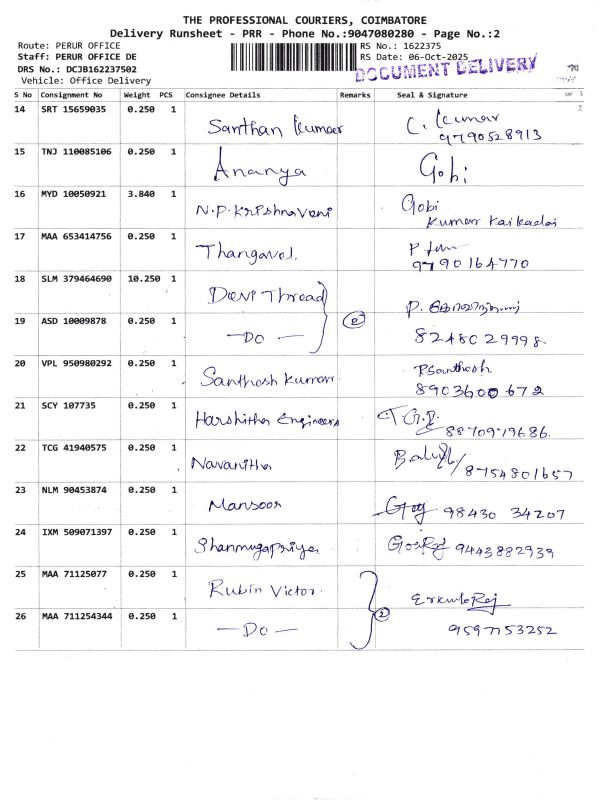 THE PROFESSIONAL COURIERS, COIMBATORE
Delivery Runsheet - PRR - Phone No.:9047080280 - Page No.:2
Route: PERUR OFFICE
RS No.: 1622375
Staff: PERUR OFFICE DE
RS Date: 06-Oct-2025
DRS No.: DCJB162237502
DOCUMENT DELIVERY
Vehicle: Office Delivery
S No Consignment No Weight PCS Consignee Details Remarks Seal & Signature
14 SRT 15659035 0.250 1 Santhan Kumar C. Kumar
9790528913
15 TNJ 110085106 0.250 1 Ananya Gobi
16 MYD 10050921 3.840 1 N.P. Krishnaveni Gobi
Kumar Kaikadai
17 MAA 653414756 0.250 1 Thangavel. P
9790164770
18 SLM 379464690 10.250 1 Devi Thread 2 P.
19 ASD 10009878 0.250 1 - Do - 8248029998
20 VPL 950980292 0.250 1 Santhosh Kumar. P Santhosh
8903600672
21 SCY 107735 0.250 1 Harshitha Engineers
8870979686.
22 TCG 41940575 0.250 1 Navanitha 8754801657
23 NLM 90453874 0.250 1 Mansoor 98430 34207
24 IXM 509071397 0.250 1 Shanmugapriya 9443882939
25 MAA 71125077 0.250 1 Rubin Victor. 2
26 MAA 711254344 0.250 1 - Do - 9597153252